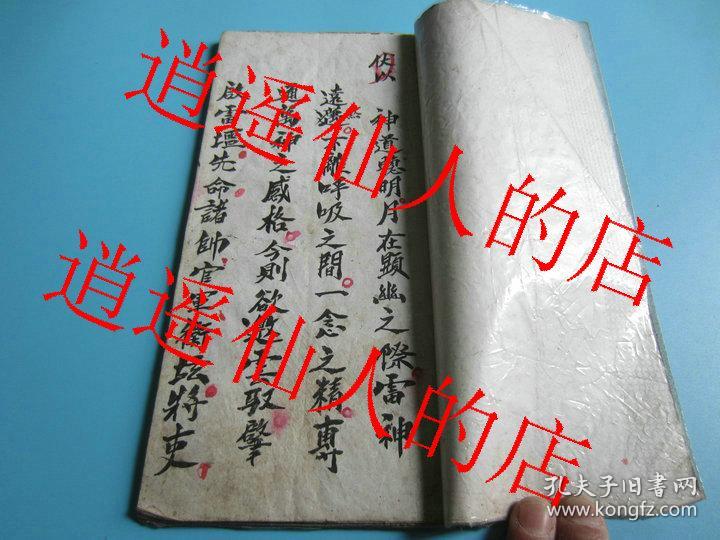 伏以
神道聰明月在顕幽之際雷神
遠邇不離呼吸之間一念之精専
通萬神之感格今則欲邀雲馭肇
啟雷壇先命諸帥官軍衛坛將吏
逍遥仙人的店
逍遥仙人的店
孔夫子旧书网
www.kongfz.com